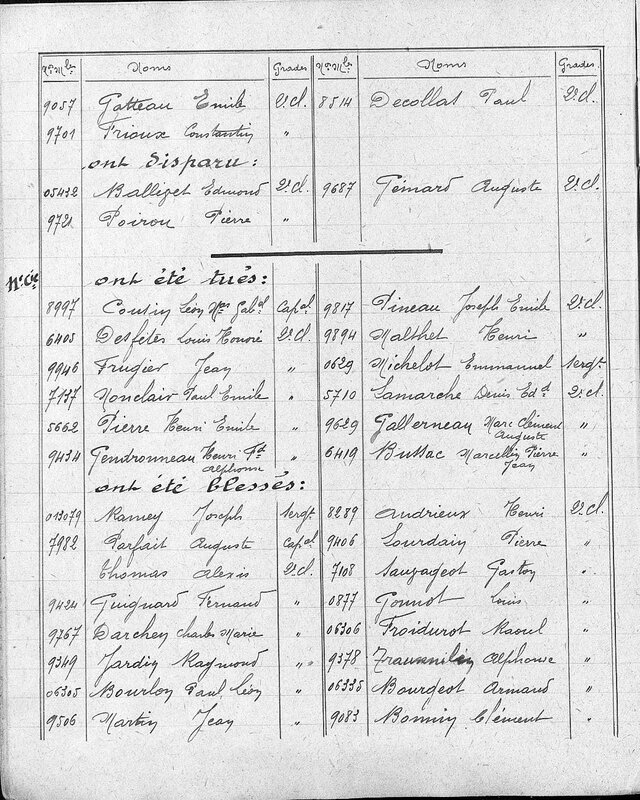 Nos Mles Noms Grades Nos Mles Noms Grades
9057 Gatteau Emile 2e cl. 8514 Decollat Paul 2e cl.
9701 Trioux Constantin "
ont disparu :
05432 Ballivet Edmond 2e cl. 9687 Gémard Auguste 2e cl.
9721 Poirou Pierre "
ont été tués :
8997 Coutin Léon Mes Gabel Capal 9817 Pineau Joseph Emile 2e cl.
6405 Desfêtes Louis Honoré 2e cl. 9894 Malthet Henri "
9946 Frugier Jean " 0629 Michelot Emmanuel Sergt
7137 Monclair Paul Emile " 5710 Lamarche Denis Edd 2e cl.
5662 Pierre Henri Emile " 9629 Gallerneau Marc Clément Auguste "
9434 Gendronneau Henri Fd Alphonse " 6419 Bussac Marcellin Pierre Jean "
ont été blessés :
013079 Ramey Joseph Sergt 8289 Andrieux Henri 2e cl.
7982 Parfait Auguste Capal 9406 Lourdain Pierre "
Thomas Alexis 2e cl. 7108 Sauvageot Gaston "
9424 Guignard Fernand " 0877 Gounot Louis "
9767 Darchen Charles Marie " 06306 Froidurot Raoul "
9349 Jardin Raymond " 9378 Alphonse "
06305 Bourlon Paul Léon " 06335 Bourgeot Armand "
9506 Martin Jean " 9083 Bonnin Clément "